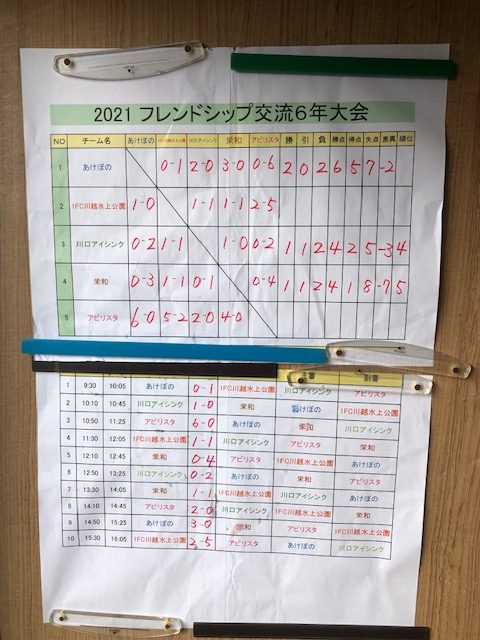 2021 フレンドシップ交流6年大会
NO チーム名 あけぼの 1FC川越水上公園 川口アイシンク 栄和 アビリスタ 勝 引 負 勝点 得点 失点 差異 順位
1 あけぼの 0-1 2-0 3-0 0-6 2 0 2 6 5 7 -2
2 1FC川越水上公園 1-0 1-1 1-1 2-5
3 川口アイシンク 0-2 1-1 1-0 0-2 1 1 2 4 2 5 -3 4
4 栄和 0-3 1-1 0-1 0-4 1 1 2 4 1 8 -7 5
5 アビリスタ 6-0 5-2 2-0 4-0
1 9:30 10:05 あけぼの 0-1 1FC川越水上公園 川口アイシンク アビリスタ
2 10:10 10:45 川口アイシンク 1-0 栄和 あけぼの 1FC川越水上公園
3 10:50 11:25 アビリスタ 6-0 あけぼの 栄和 川口アイシンク
4 11:30 12:05 1FC川越水上公園 1-1 川口アイシンク アビリスタ 栄和
5 12:10 12:45 栄和 0-4 アビリスタ 1FC川越水上公園 あけぼの
6 12:50 13:25 川口アイシンク 0-2 あけぼの 栄和 アビリスタ
7 13:30 14:05 栄和 1-1 1FC川越水上公園 川口アイシンク あけぼの
8 14:10 14:45 アビリスタ 2-0 川口アイシンク 1FC川越水上公園 栄和
9 14:50 15:25 あけぼの 3-0 栄和 アビリスタ 1FC川越水上公園
10 15:30 16:05 1FC川越水上公園 2-5 アビリスタ あけぼの 川口アイシンク